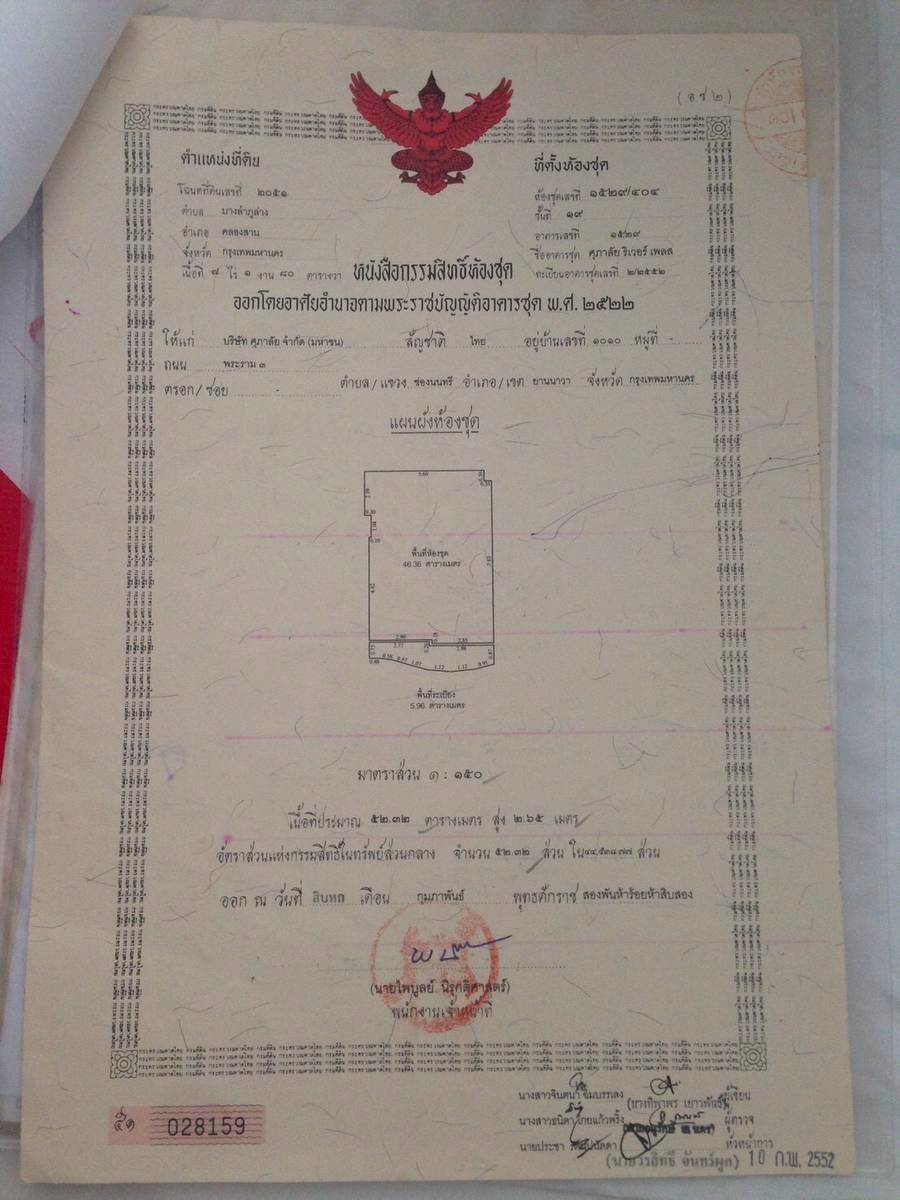 (อ.ช.๒)
ตำแหน่งที่ดิน
โฉนดที่ดินเลขที่ ๒๐๕๑
ตำบล บางลำภูล่าง
อำเภอ คลองสาน
จังหวัด กรุงเทพมหานคร
เนื้อที่ ๗ ไร่ ๑ งาน ๘๐ ตารางวา
ที่ตั้งห้องชุด
ห้องชุดเลขที่ ๑๕๒๙/๔๐๔
ชั้นที่ ๑๙
อาคารเลขที่ ๑๕๒๙
ชื่ออาคารชุด ศุภาลัย ริเวอร์ เพลส
ทะเบียนอาคารชุดเลขที่ ๒/๒๕๕๒
หนังสือกรรมสิทธิ์ห้องชุด
ออกโดยอาศัยอำนาจตามพระราชบัญญัติอาคารชุด พ.ศ. ๒๕๒๒
ให้แก่ บริษัท ศุภาลัย จำกัด (มหาชน) สัญชาติ ไทย อยู่บ้านเลขที่ ๑๐๑๐ หมู่ที่ -
ถนน พระราม ๓
ตรอก/ซอย - ตำบล/แขวง ช่องนนทรี อำเภอ/เขต ยานนาวา จังหวัด กรุงเทพมหานคร
แผนผังห้องชุด
5.60
พื้นที่ห้องชุด
46.36 ตารางเมตร
4.82
2.90 2.85
2.77 2.88
1.07 1.12 1.12
พื้นที่ระเบียง
5.96 ตารางเมตร
มาตราส่วน ๑ : ๑๕๐
เนื้อที่ประมาณ ๕๒.๓๒ ตารางเมตร สูง ๒.๖๕ เมตร
อัตราส่วนแห่งกรรมสิทธิ์ในทรัพย์ส่วนกลาง จำนวน ๕๒.๓๒ ส่วน ใน ๔๔,๕๓๘.๗๗ ส่วน
ออก ณ วันที่ สิบหก เดือน กุมภาพันธ์ พุทธศักราช สองพันห้าร้อยห้าสิบสอง
(นายไพบูลย์ นิรุกติศาสตร์)
พนักงานเจ้าหน้าที่
028159
นางสาวจินตนา อิ่มบรรเลง ผู้เขียน
(นางทิพาพร เยาวพันธ์)
นางสาวธนิดา ไทยแก้วพริ้ง ผู้ตรวจ
นายประชา หัวหน้าการ
(นายวรสิทธิ์ จันทร์ผูก) 10 ก.พ. 2552